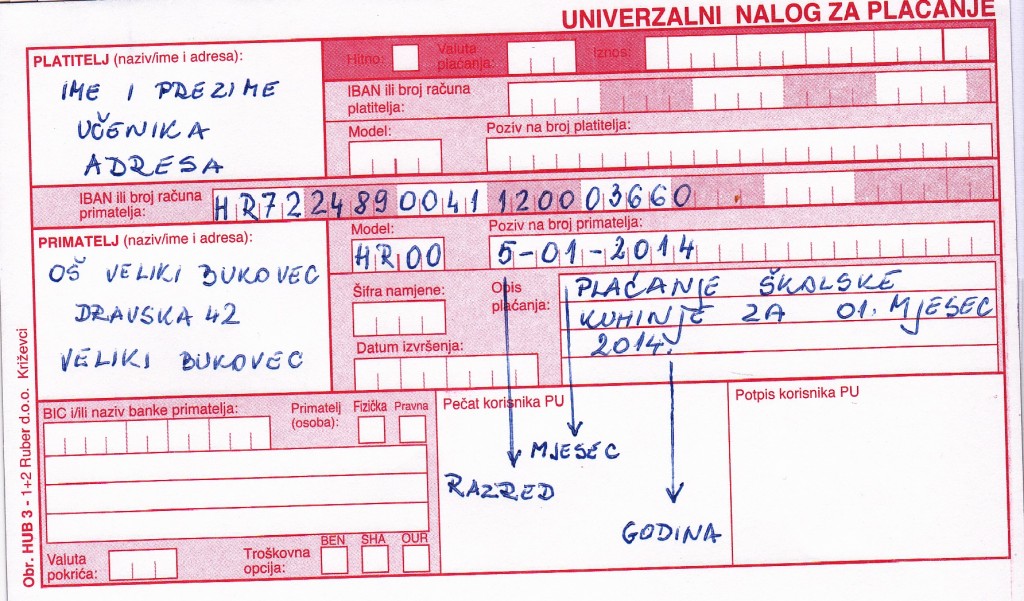 UNIVERZALNI NALOG ZA PLAĆANJE
PLATITELJ (naziv/ime i adresa):
IME I PREZIME
UČENIKA
ADRESA
Hitno:
Valuta
plaćanja:
Iznos:
IBAN ili broj računa
platitelja:
Model:
Poziv na broj platitelja:
IBAN ili broj računa
primatelja:
HR7224890041120003660
PRIMATELJ (naziv/ime i adresa):
OŠ VELIKI BUKOVEC
DRAVSKA 42
VELIKI BUKOVEC
Model:
HR00
Poziv na broj primatelja:
5-01-2014
Šifra namjene:
Opis
plaćanja:
PLAĆANJE ŠKOLSKE
KUHINJE ZA 01. MJESEC
2014.
Datum izvršenja:
BIC i/ili naziv banke primatelja:
Primatelj
(osoba):
Fizička
Pravna
Pečat korisnika PU
Potpis korisnika PU
MJESEC
RAZRED
GODINA
Valuta
pokrića:
Troškovna
opcija:
BEN
SHA
OUR
Obr. HUB 3 - 1+2 Ruber d.o.o. Križevci